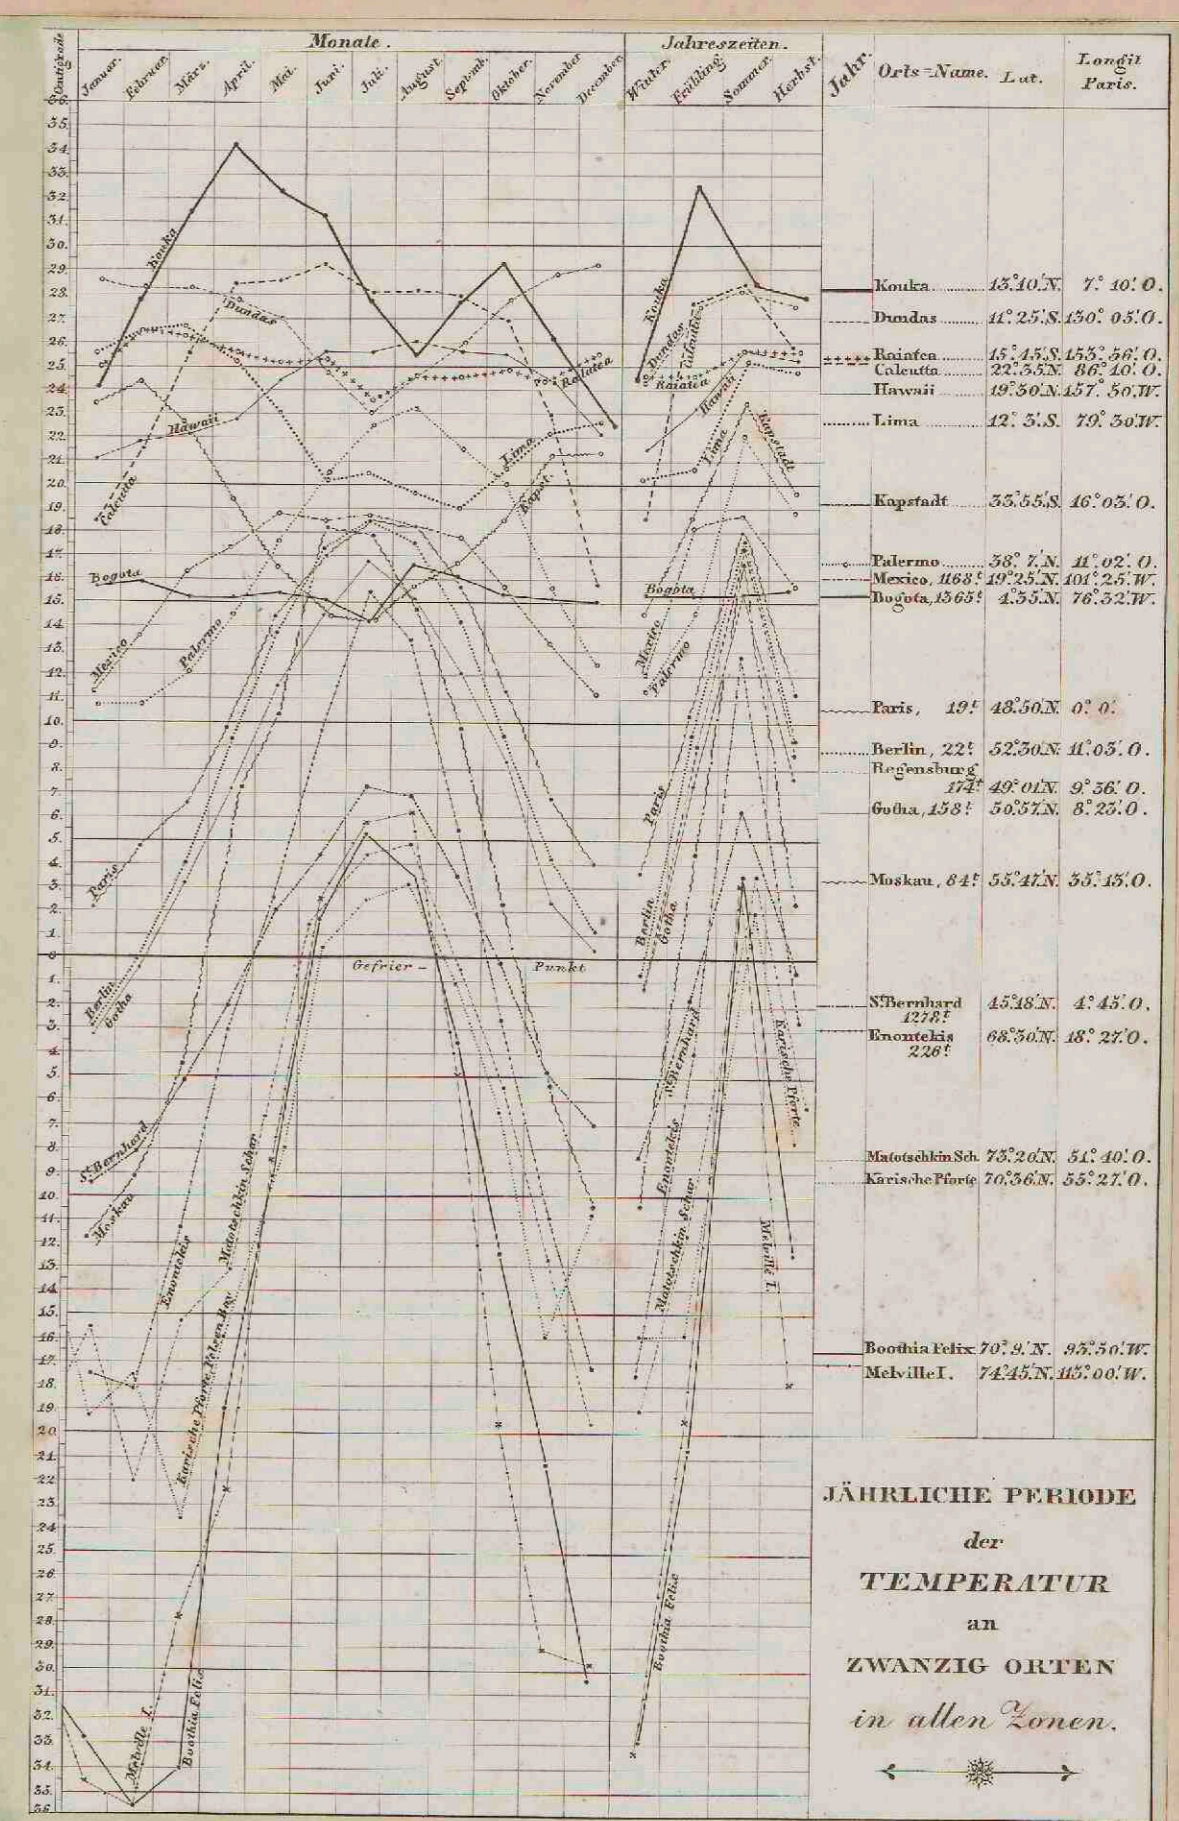 Monate.
Jahreszeiten.
Januar. Februar. März. April. Mai. Juni. Juli. August. Septemb. Oktober. November December.
Winter. Frühling. Sommer. Herbst.
Jahr. Orts=Name. Lat. Longit Paris.
36.
35.
34.
33.
32.
31.
30.
29.
28.
27.
26.
25.
24.
23.
22.
21.
20.
19.
18.
17.
16.
15.
14.
13.
12.
11.
10.
9.
8.
7.
6.
5.
4.
3.
2.
1.
0
1.
2.
3.
4.
5.
6.
7.
8.
9.
10.
11.
12.
13.
14.
15.
16.
17.
18.
19.
20.
21.
22.
23.
24.
25.
26.
27.
28.
29.
30.
31.
32.
33.
34.
35.
36.
Kouka
Dundas
Hawaii
Calcutta
Raiatea
Lima
Kapst.
Bogota
Mexico
Palermo
Paris
Berlin
Gotha
Gefrier - Punkt
St. Bernhard
Moskau
Enontekis
Matotschkin Schar
Karische Pforte Felsen Bay
Melville I.
Boothia Felix
Kouka
Dundas
Calcutta
Raiatea
Hawaii
Lima
Kapstadt
Bogota
Mexico
Palermo
Paris
Berlin
Gotha
St. Bernhard
Karische Pforte
Enontekis
Matotschkin Schar
Melville I.
Boothia Felix
Kouka 13.°10.'N. 7.° 10.' O.
Dundas 11.° 25.'S. 130.° 05.'O.
Raiatea 15.° 45.'S. 153.° 56.'O.
Calcutta 22.°35.'N. 86.° 10.' O.
Hawaii 19.°30.'N. 157.° 50.'W.
Lima 12.° 3.'S. 79.° 30.'W.
Kapstadt 33.°55.'S. 16.° 03.' O.
Palermo 38.° 7.'N. 11.° 02.' O.
Mexico, 1168t 19.°25.'N. 101.° 25.'W.
Bogota, 1365t 4.°35.'N. 76.°32.'W.
Paris, 19t 48.°50.'N. 0.° 0.'
Berlin, 22t 52.°30.'N. 11.° 03.' O.
Regensburg
174t 49.° 01.'N. 9.° 36.' O.
Gotha, 158t 50.°57.'N. 8.° 23.' O.
Moskau, 84t 55.°47.'N. 35.° 13.'O.
St. Bernhard 45.°18.'N. 4.° 45.' O.
1278t
Enontekis 68.°30.'N. 18.° 27.'O.
226t
Matotschkin Sch. 73.° 20.'N. 51.° 40.' O.
Karische Pforte 70.°36.'N. 55.° 27.' O.
Boothia Felix 70.° 9.' N. 93.° 50.'W.
Melville I. 74.°45.'N. 113.° 00.' W.
JÄHRLICHE PERIODE
der
TEMPERATUR
an
ZWANZIG ORTEN
in allen Zonen.